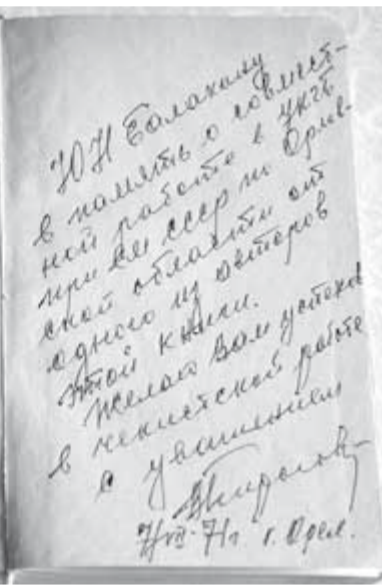 Ю Н Балахону
в память о совмест-
ной работе в УКГБ
при СМ СССР по Орлов-
ской области от
одного из авторов
этой книги.
Желаю Вам успехов
в чекистской работе
с уважением
71г. г. Орел.